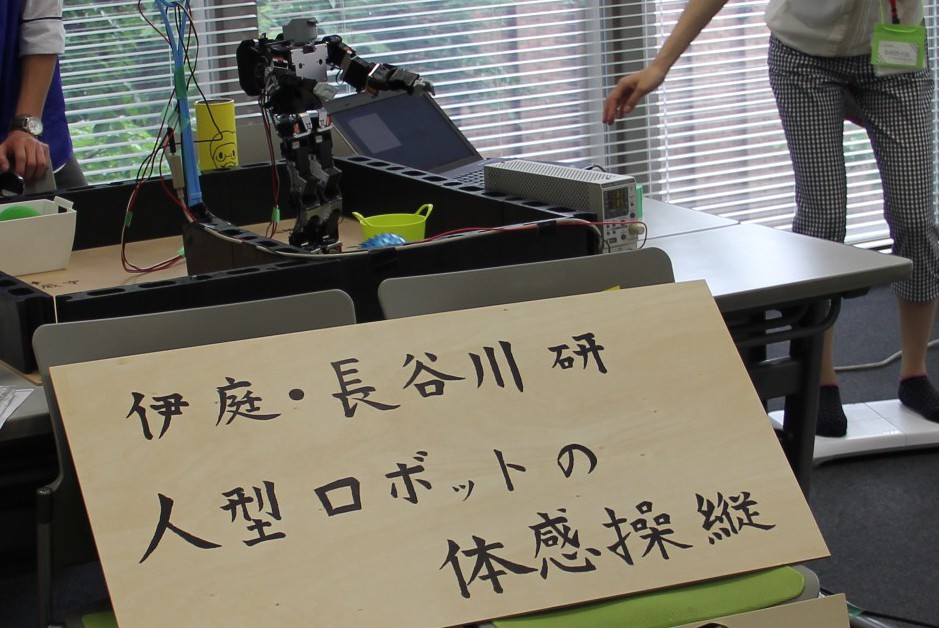 伊庭・長谷川研
人型ロボットの
体感操縦